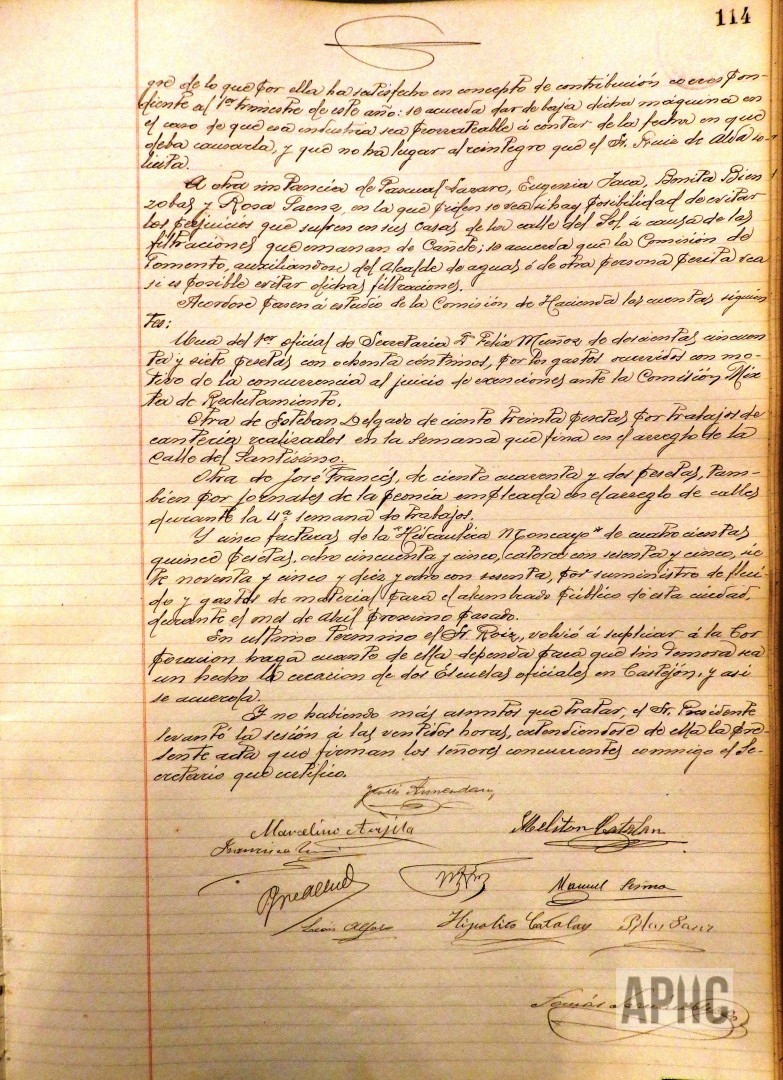 114
gre de lo que por ella ha satisfecho en concepto de contribución correspon-
diente al 1er trimestre de este año: se acuerda dar de baja dicha máquina en
el caso de que esa industria sea prorrateable á contar de la fecha en que
deba causarla, y que no ha lugar al reintegro que el Sr. Ruiz de Alda so-
licita.
A otra instancia de Pascual Lazaro, Eugenia Jaca, Benita Bien
zobas y Rosa Saenz, en la que piden se vea si hay posibilidad de evitar
los perjuicios que sufren en sus casas de la calle del Sol á causa de las
filtraciones que emanan de Cañete; se acuerda que la Comisión de
Fomento, auxiliandose del Alcalde de aguas ó de otra persona perita vea
si es posible evitar dichas filtraciones.
Acordose pasen á estudio de la Comisión de Hacienda las cuentas siguien
tes:
Una del 1er oficial de Secretaria Dn Felix Muñoz de doscientas cincuen
ta y siete pesetas con ochenta céntimos, por los gastos ocurridos con mo-
tivo de la concurrencia al juicio de exenciones ante la Comisión Mix
ta de Reclutamiento.
Otra de Esteban Delgado de ciento treinta pesetas por trabajos de
canteria realizados en la semana que fina en el arreglo de la
Calle del Santisimo.
Otra de José Francés, de ciento cuarenta y dos pesetas, tam-
bien por jornales de la peonia empleada en el arreglo de calles
durante la 4ª semana de trabajos.
Y cinco facturas de la "Hidraulica Moncayo" de cuatrocientas
quince pesetas, ocho cincuenta y cinco, catorce con sesenta y cinco, sie
te noventa y cinco y diez y ocho con sesenta, por suministro de flui-
do y gastos de material para el alumbrado público de esta ciudad,
durante el mes de Abril próximo pasado.
En ultimo termino el Sr. Roiz, volvió á suplicar á la Cor
poracion haga cuanto de ella dependa para que sin demora sea
un hecho la creacion de dos Escuelas oficiales en Castejón, y asi
se acuerda.
Y no habiendo más asuntos que tratar, el Sr. Presidente
levantó la sesión á las ventidos horas, extendiendose de ella la pre-
sente acta que firman los señores concurrentes conmigo el Se-
cretario que certifico.
Marcelino Meliton Catalan
Francisco
Manuel
León Alfaro Hipolito Catalan Blas Sanz
Tomás
APHC